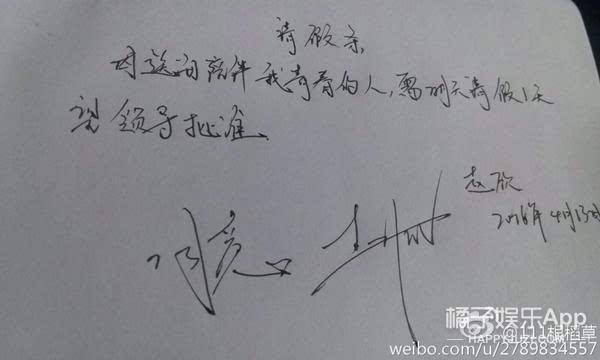 请假条
因送别陪伴我青春的人,需明天请假1天
望领导批准.
赵欣
2016年4月13日
同意
橘子娱乐App
@111根稻草
HAPPYJUZI.COM
weibo.com/u/2789834557